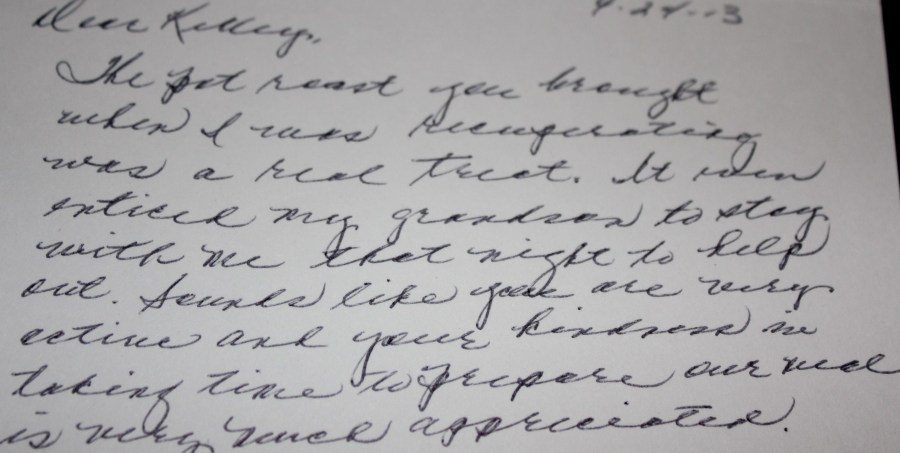 4-24-13
Dear Kelley,
The pot roast you brought
when I was recuperating
was a real treat. It even
enticed my grandson to stay
with me that night to help
out. Sounds like you are very
active and your kindness in
taking time to prepare our meal
is very much appreciated.